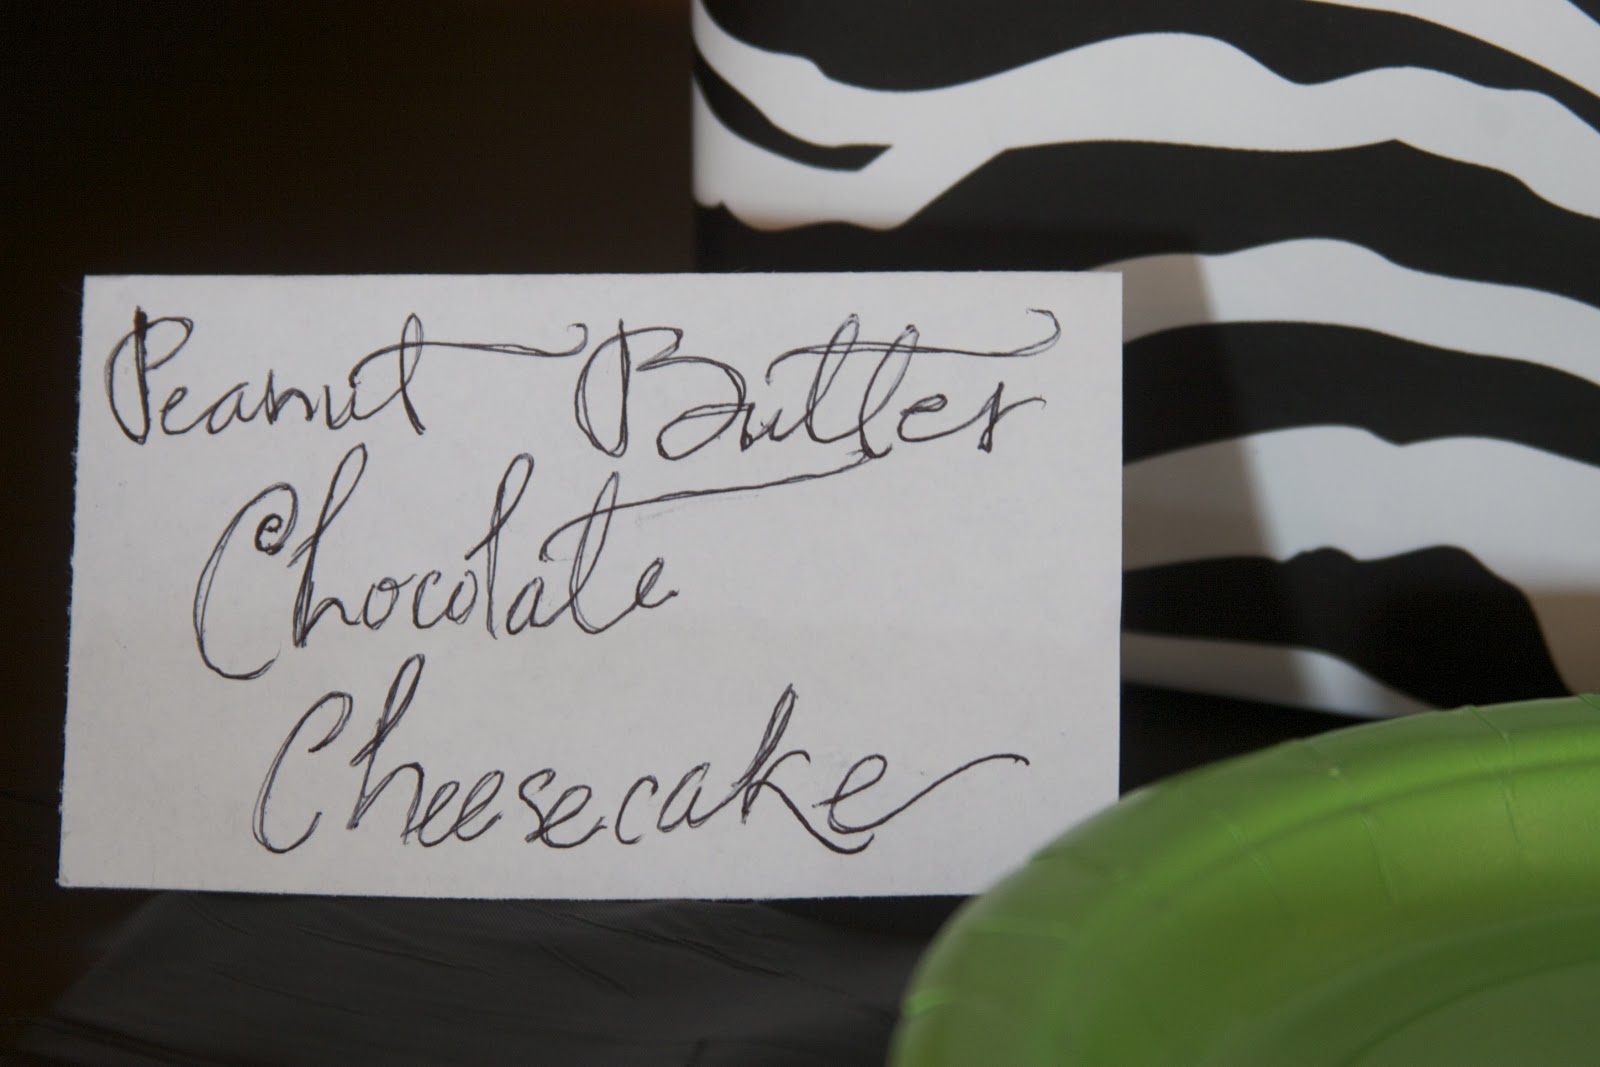 Peanut Butter
Chocolate
Cheesecake